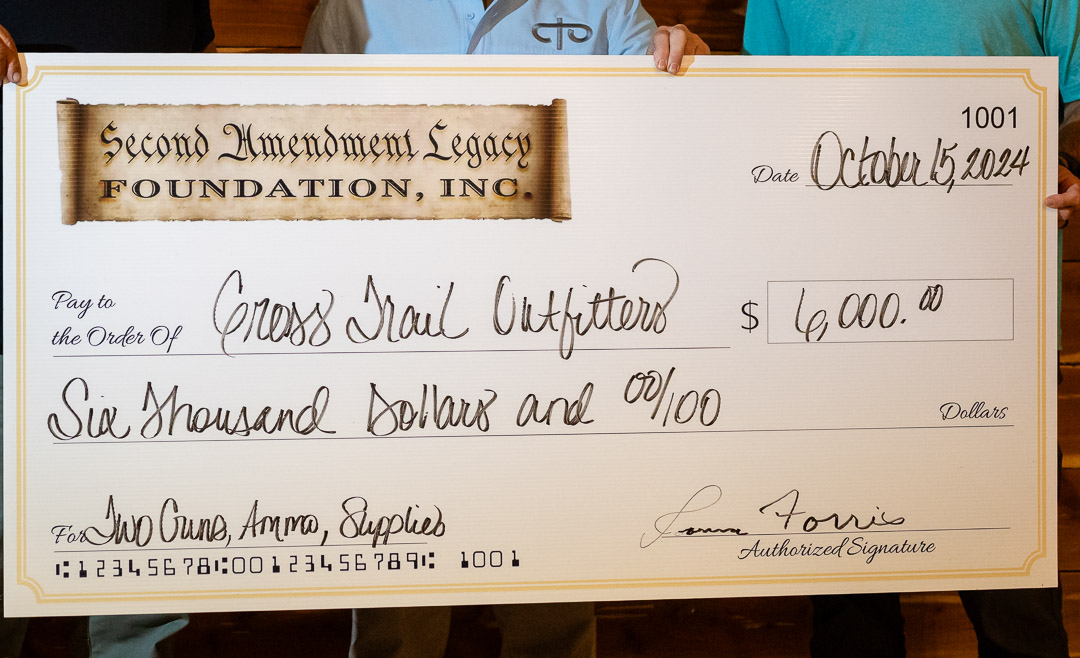 Second Amendment Legacy
FOUNDATION, INC.
1001
Date October 15, 2024
Pay to
the Order Of Cross Trail Outfitters $ 6,000.00
Six Thousand Dollars and 00/100 Dollars
For Two Guns, Ammo, Supplies
Forris
Authorized Signature
⑆12345678⑆00123456789⑆ 1001